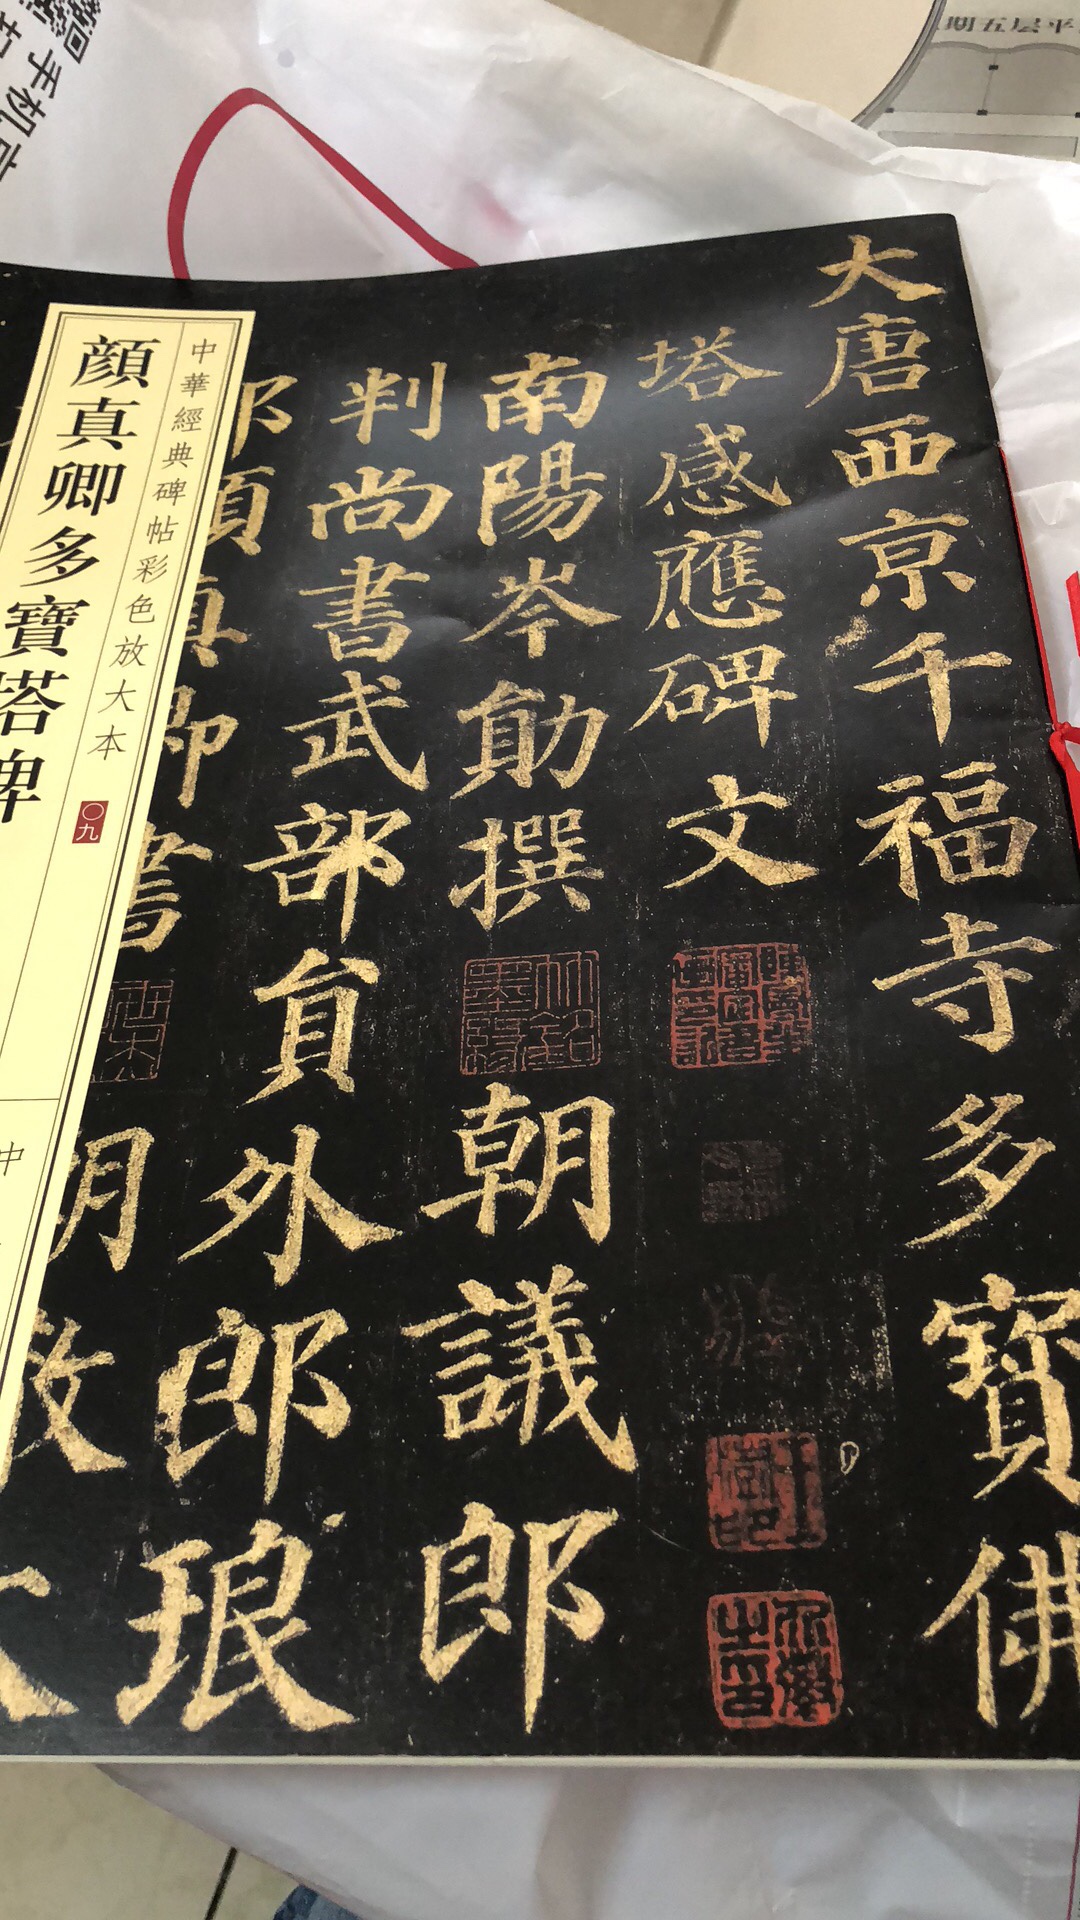 大唐西京千福寺多寶佛
塔感應碑文
南陽岑勛撰
朝議郎
判尚書武部員外郎琅
顏真卿多寶塔碑
中華經典碑帖彩色放大本
〇九
中
手机
期五层平